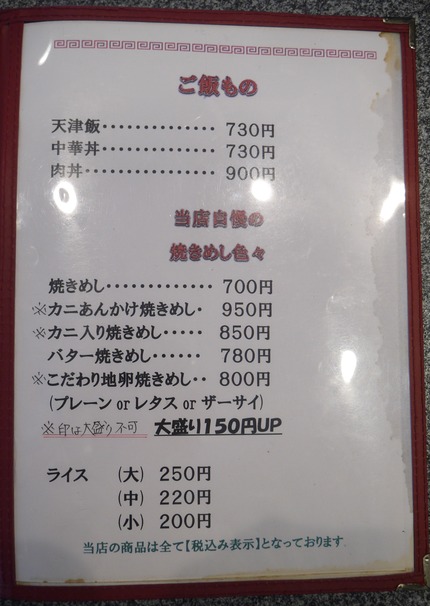 ご飯もの
天津飯・・・・・・・・・・・・・・ 730円
中華丼・・・・・・・・・・・・・・ 730円
肉丼・・・・・・・・・・・・・・・・ 900円
当店自慢の
焼きめし色々
焼きめし・・・・・・・・・・・・・ 700円
※カニあんかけ焼きめし・ 950円
※カニ入り焼きめし・・・・・ 850円
バター焼きめし・・・・・・ 780円
※こだわり地卵焼きめし・・ 800円
(プレーン or レタス or ザーサイ)
※印は大盛り不可 大盛り150円UP
ライス (大) 250円
(中) 220円
(小) 200円
当店の商品は全て【税込み表示】となっております.